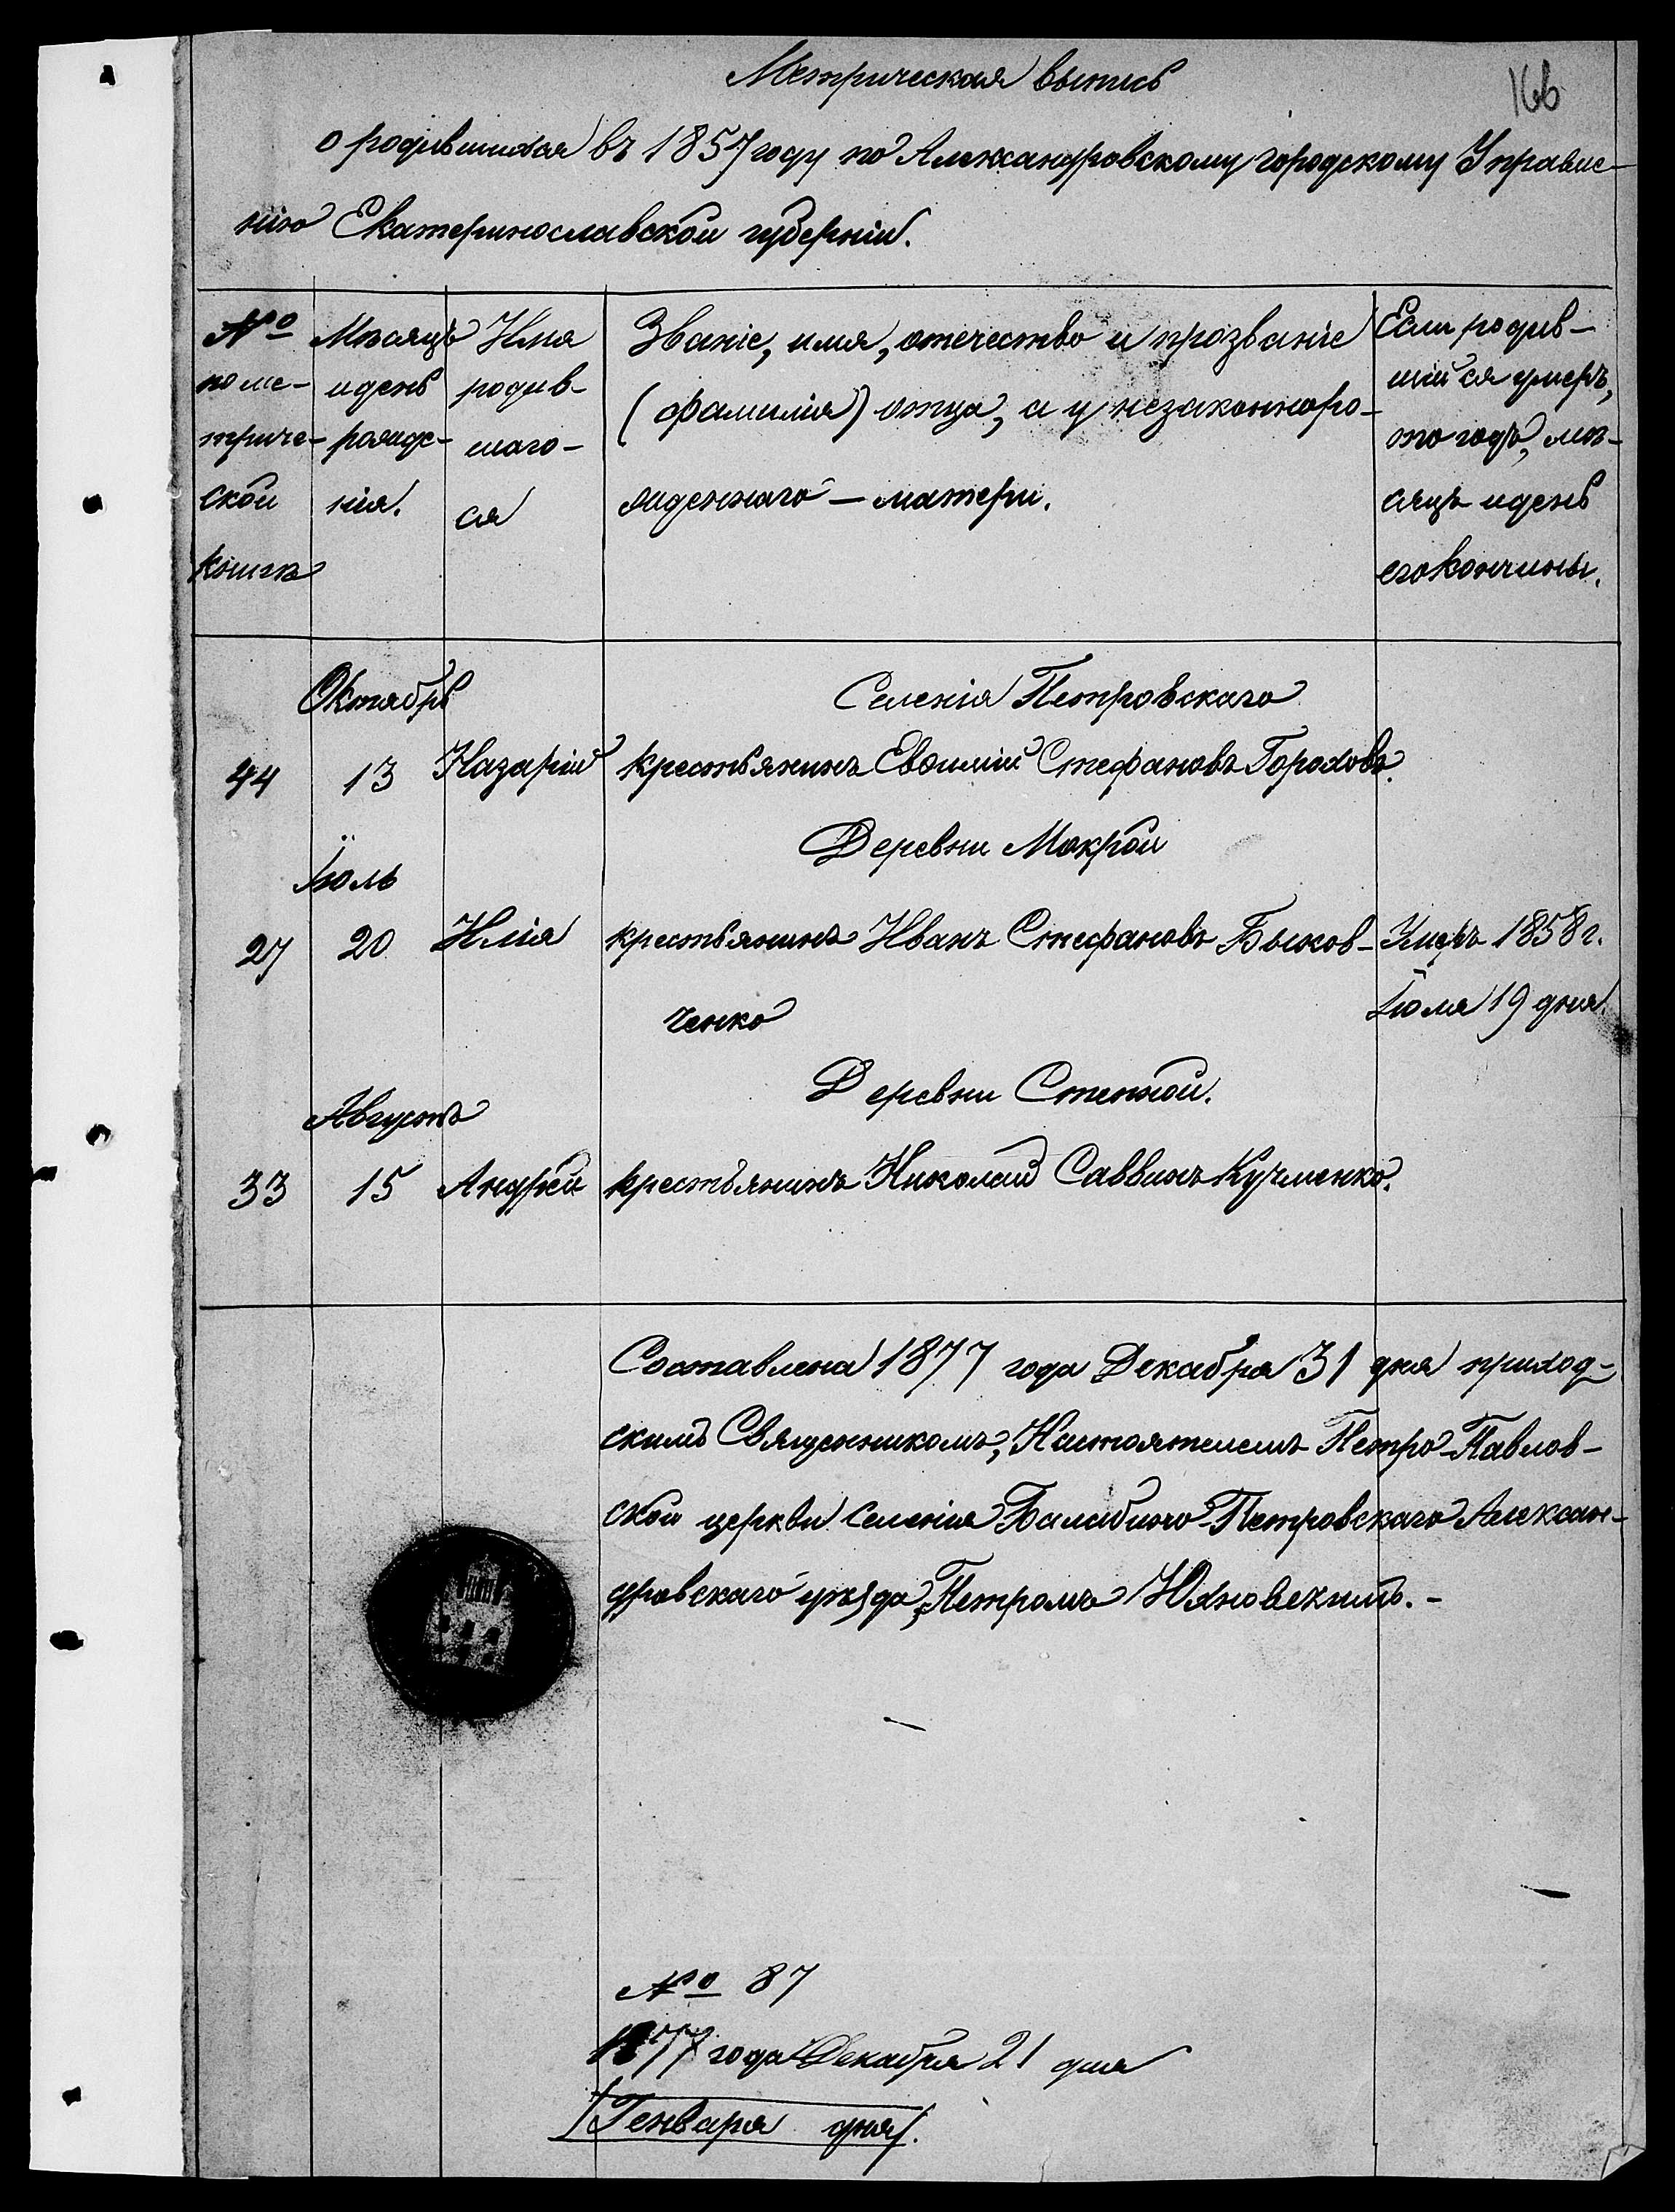 166
Метрическая выпись
о родившихся въ 1857 году по Александровскому городскому Управле-
нію Екатеринославской губерніи.
№ по ме-
триче-
ской
книгѣ
Мѣсяцъ
и день
рожде-
нія.
Имя
родив-
шаго-
ся
Званіе, имя, отечество и прозваніе
(фамилія) отца, а у незаконноро-
жденнаго — матери.
Если родив-
шійся умеръ,
то годъ, мѣ-
сяцъ и день
его кончины.
Октябрь Селенія Петровскаго
44 13 Назарій крестьянинъ Евѳимій Стефановъ Гороховъ.
Деревни Мокрой
Іюль
27 20 Илія крестьянинъ Иванъ Стефановъ Быков- Умеръ 1858 г.
ченко Іюля 19 дня.
Деревни Степной.
Августъ
33 15 Андрей крестьянинъ Николай Саввинъ Кучменко.
Составлена 1877 года Декабря 31 дня приход-
скимъ Священникомъ, Настоятелемъ Петро-Павлов-
ской церкви селенія Балабино-Петровскаго Алексан-
дровскаго уѣзда, Петромъ
№ 87
1877 года Декабря 21 дня
Генваря дня.